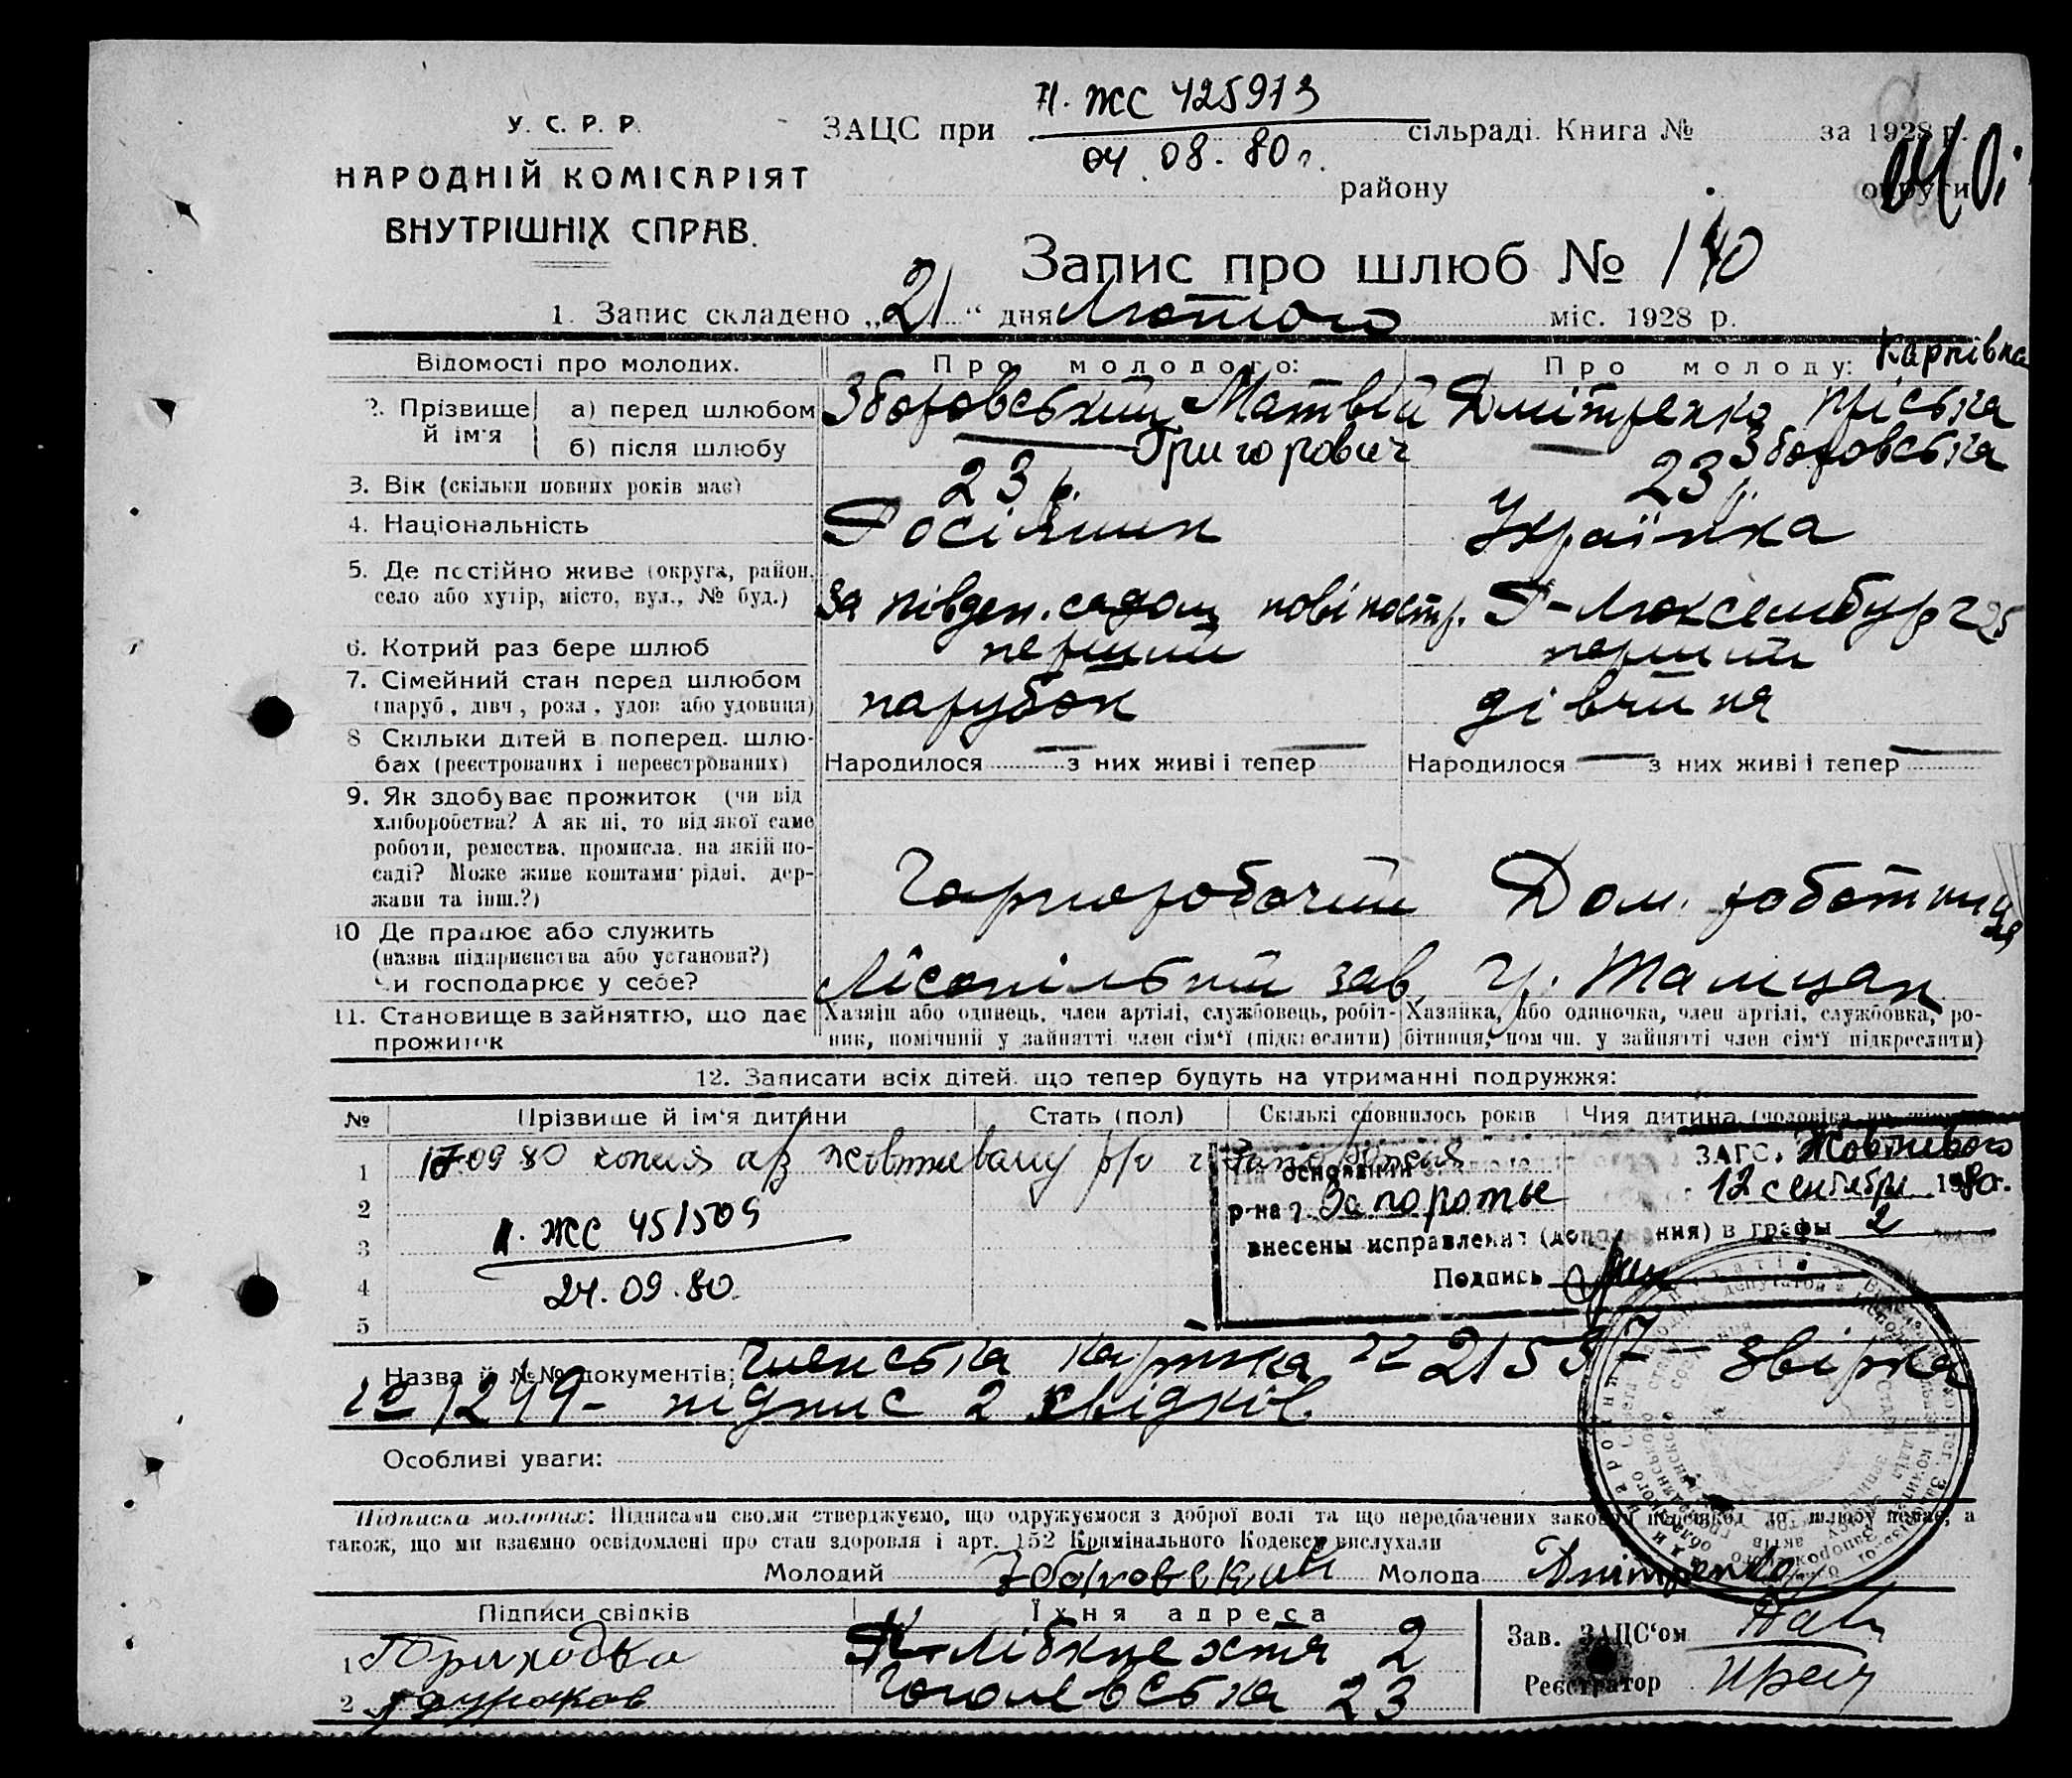 П. ЖС 425973
У. С. Р. Р.
ЗАЦС при сільраді. Книга № за 1928 р.
04.08.80 г.
НАРОДНІЙ КОМІСАРІЯТ
району округи
ВНУТРІШНІХ СПРАВ.
Запис про шлюб № 140
1. Запис складено „21“ дня Лютого міс. 1928 р.
Відомості про молодих. Про молодого: Про молоду: Карпівна
2. Прізвище й ім'я а) перед шлюбом Зборовський Матвій Дмітренко Пріська
б) після шлюбу — Григорович — Зборовська
3. Вік (скільки повних років має) 23 р. 23 р.
4. Національність Росіянин Українка
5. Де постійно живе (округа, район,
село або хутір, місто, вул., № буд.) За півден. садом нові постр. Р-Люксембург 25
6. Котрий раз бере шлюб перший перший
7. Сімейний стан перед шлюбом
(паруб., дівч., розл., удов. або удовиця) парубок дівчина
8 Скільки дітей в поперед. шлю-
бах (реєстрованих і нереєстрованих) Народилося — з них живі і тепер — Народилося — з них живі і тепер —
9. Як здобуває прожиток (чи від
хліборобства? А як ні, то від якої саме
роботи, ремества, промисла, на якій по-
саді? Може живе коштами рідні, дер-
жави та інш.?) Чорноробочий Дом. роботниця
10 Де працює або служить
(назва підприємства або установи?)
Чи господарює у себе? Лісопільний зав. У.
11. Становище в зайняттю, що дає Хазяїн або одинець, член артілі, службовець, робіт- Хазяйка, або одиночка, член артілі, службовка, ро-
прожиток ник, помічний у зайнятті член сім'ї (підкреслити) бітниця, помічн. у зайнятті член сім'ї підкреслити)
12. Записати всіх дітей, що тепер будуть на утриманні подружжя:
№ Прізвище й ім'я дитини Стать (пол) Скількі сповнилось років Чия дитина
1 17 09 80 копия а/з р/о г. Запорожья
На основании ЗАГС. Жовтневого
2 р-на г. Запорожье 12 сентября 1980 г.
П. ЖС 451509
3 внесены исправления (дополнения) в графы 2
4 24.09.80. Подпись
5
Назва й №№ документів: Членська картка № 21537 — звірка
№ 1249 - підпис 2 свідків.
Особливі уваги:
Підписка молодих: Підписами своїми стверджуємо, що одружуємося з доброї волі та що передбачених законом перешкод до шлюбу немає, а
також, що ми взаємно освідомлені про стан здоровля і арт. 152 Кримінального Кодексу вислухали
Молодий Зборовский Молода Дмітренко
Підписи свідків Їхня адреса
Зав. ЗАЦС'ом
1 Приходько К-Лібкнехта 2
Реєстратор
2 Гоголевська 23